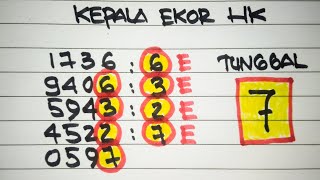 KEPALA EKOR HK
1736 : 6 E
9406 : 3 E
5943 : 2 E
4522 : 7 E
0597
TUNGGAL
7